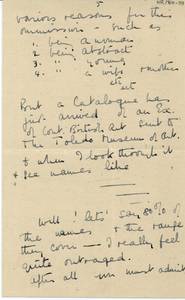 5
various reasons for this
ommission such as
1. being a woman
2. being abstract
3. " young
4. a wife & mother
etc
ect
But a Catalogue has
just arrived of an Ex.
of Cont. British Art sent to
The Toledo Museum of Art.
& when I look through it
& see names like
Well! lets say 80% of
the names & the range
they cover — I really feel
quite outraged.
after all we must admit